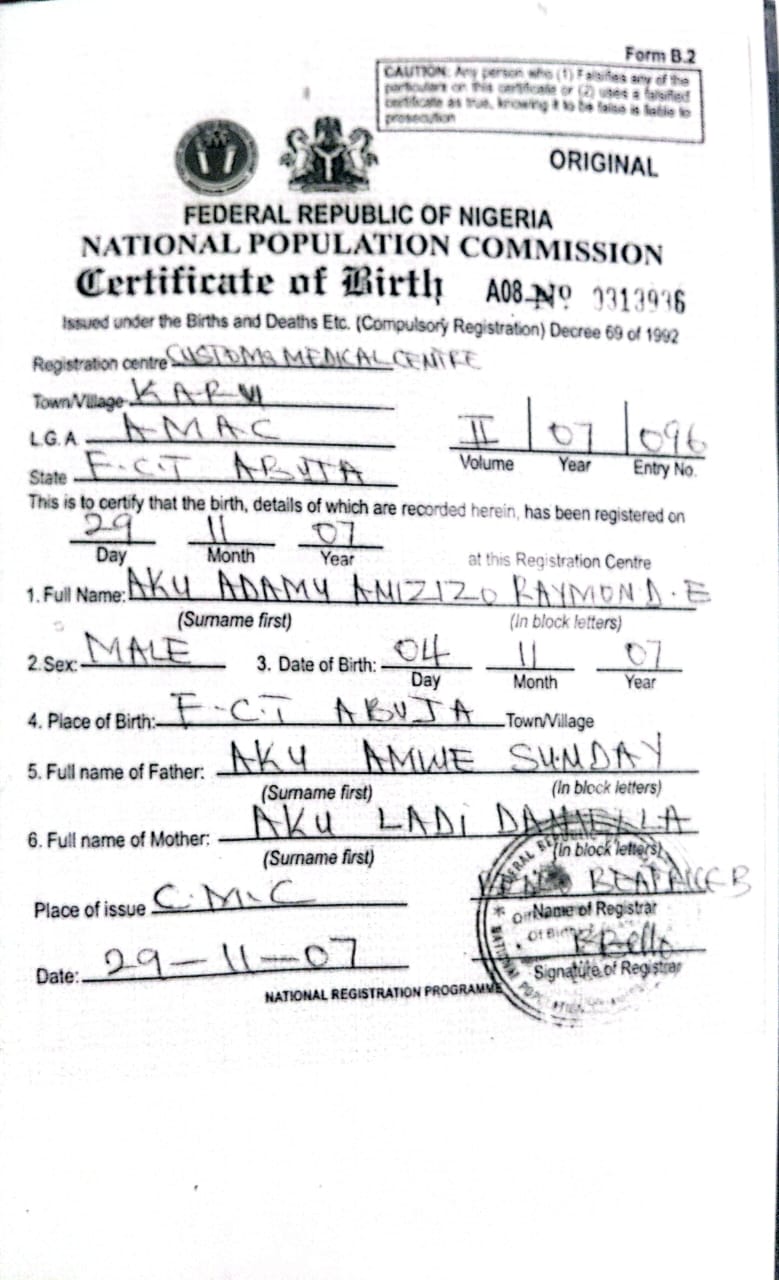 Form B.2
CAUTION: Any person who (1) Falsifies any of the
particulars on this certificate or (2) uses a falsified
certificate as true, knowing it to be false is liable to
prosecution
ORIGINAL
FEDERAL REPUBLIC OF NIGERIA
NATIONAL POPULATION COMMISSION
Certificate of Birth A08 No 0313936
Issued under the Births and Deaths Etc. (Compulsory Registration) Decree 69 of 1992
Registration centre CUSTOMS MEDICAL CENTRE
Town/Village KARU
L.G.A AMAC
II 07 096
Volume Year Entry No.
State F.C.T ABUJA
This is to certify that the birth, details of which are recorded herein, has been registered on
29 11 07
Day Month Year at this Registration Centre
1. Full Name: AKU ADAMU ANIZIZO RAYMOND.E
(Surname first) (In block letters)
2. Sex: MALE 3. Date of Birth: 04 11 07
Day Month Year
4. Place of Birth: F.C.T ABUJA Town/Village
5. Full name of Father: AKU AMWE SUNDAY
(Surname first) (In block letters)
6. Full name of Mother: AKU LADI DANIELLA
(Surname first) (In block letters)
Place of issue C.M.C BEATRICE B
Name of Registrar
Date: 29-11-07 BBello
Signature of Registrar
NATIONAL REGISTRATION PROGRAMME